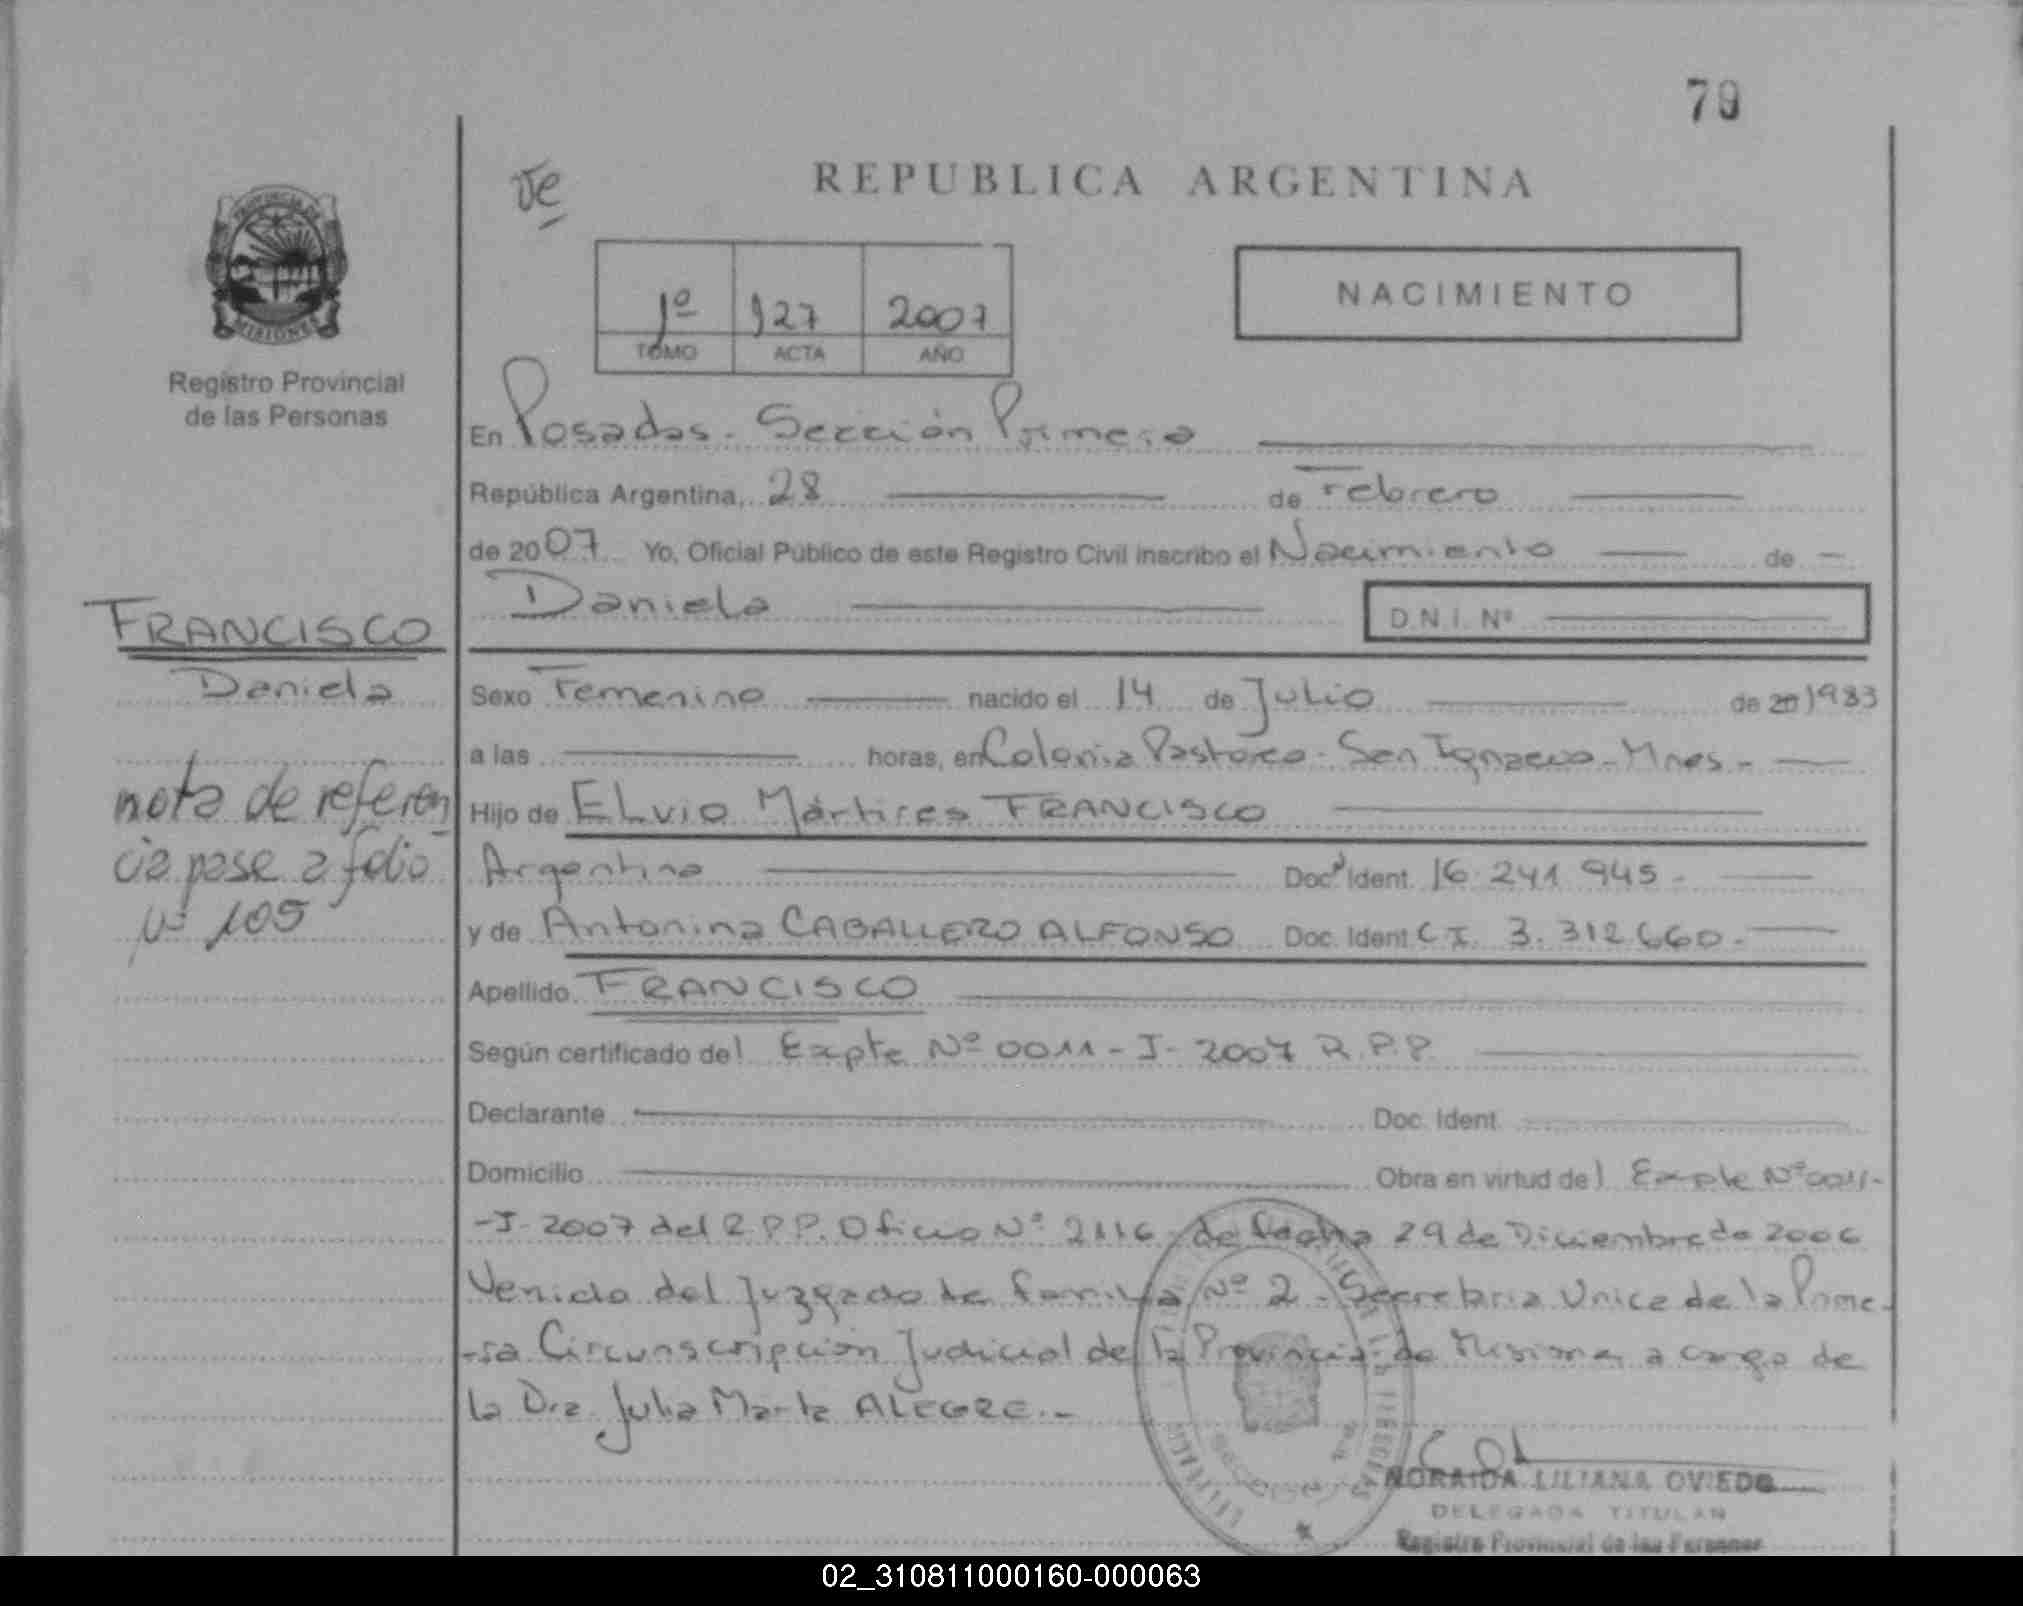 79
REPUBLICA ARGENTINA
PROVINCIA DE
MISIONES
Registro Provincial
de las Personas
1º 127 2007
TOMO ACTA AÑO
NACIMIENTO
En Posadas - Sección Primera
República Argentina, 28 de Febrero
de 2007 Yo, Oficial Público de este Registro Civil inscribo el Nacimiento de
Daniela
D.N.I. Nº
FRANCISCO
Daniela
nota de referen
cia pase a folio
Nº 105
Sexo Femenino nacido el 14 de Julio de 20 1983
a las horas, en Colonia Pastoreo - San Ignacio - Mnes -
Hijo de ELvio Mártires FRANCISCO
Argentina Doc. Ident. 16.241.945.-
y de Antonina CABALLERO ALFONSO Doc. Ident. C.I. 3.312.660.-
Apellido FRANCISCO
Según certificado del Expte Nº 0011-I-2007 R.P.P.
Declarante Doc. Ident.
Domicilio Obra en virtud del Expte Nº 0011-
-I-2007 del R.P.P. Oficio Nº 2116 de fecha 29 de Diciembre de 2006
Venido del Juzgado de familia Nº 2 - Secretaria Unica de la Prime-
-ra Circunscripción Judicial de la Provincia de Misiones a cargo de
la Dra. Julia Marta ALEGRE.-
NORAIDA LILIANA OVIEDO
DELEGADA TITULAR
Registro Provincial de las Personas
02_310811000160-000063